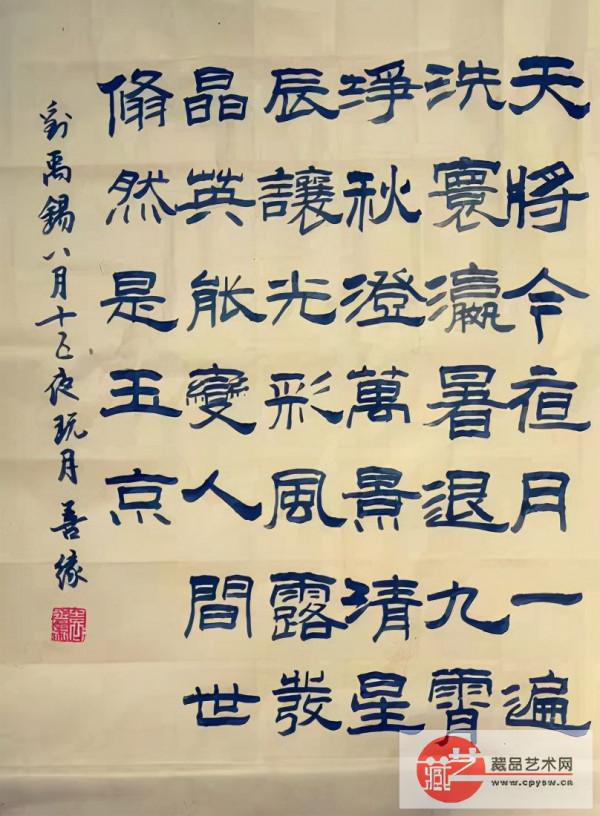 天將今夜月一遍
洗寰瀛暑退九霄
淨秋澄萬景清星
辰讓光彩風露發
晶英能變人間世
翛然是玉京
劉禹錫八月十五夜玩月 善緣
藏艺
藏品艺术网
www.cpysw.cn